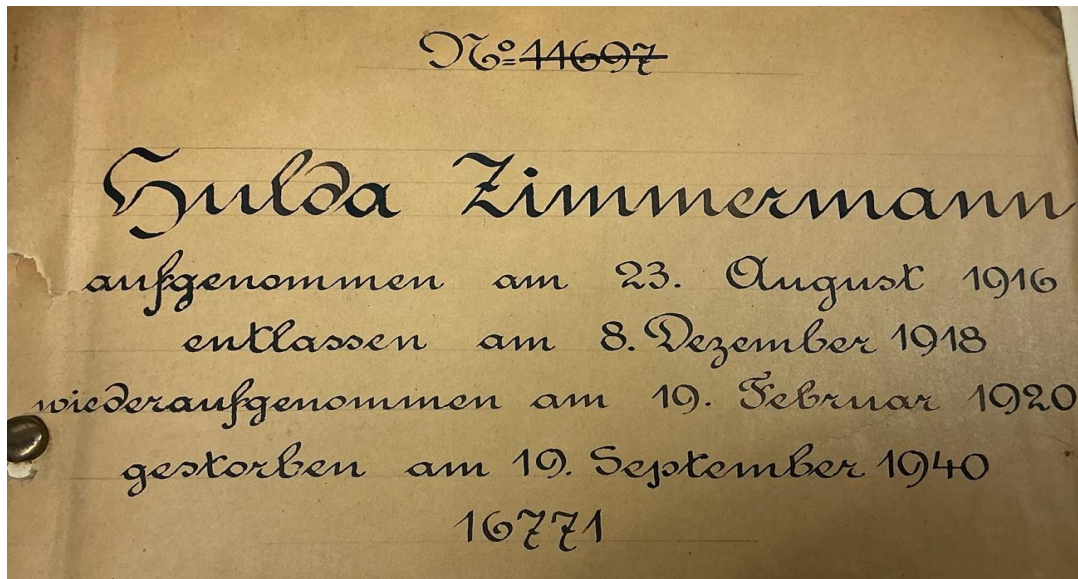 No 11697
Hulda Zimmermann
aufgenommen am 23. August 1916
entlassen am 8. Dezember 1918
wiederaufgenommen am 19. Februar 1920
gestorben am 19. September 1940
16771